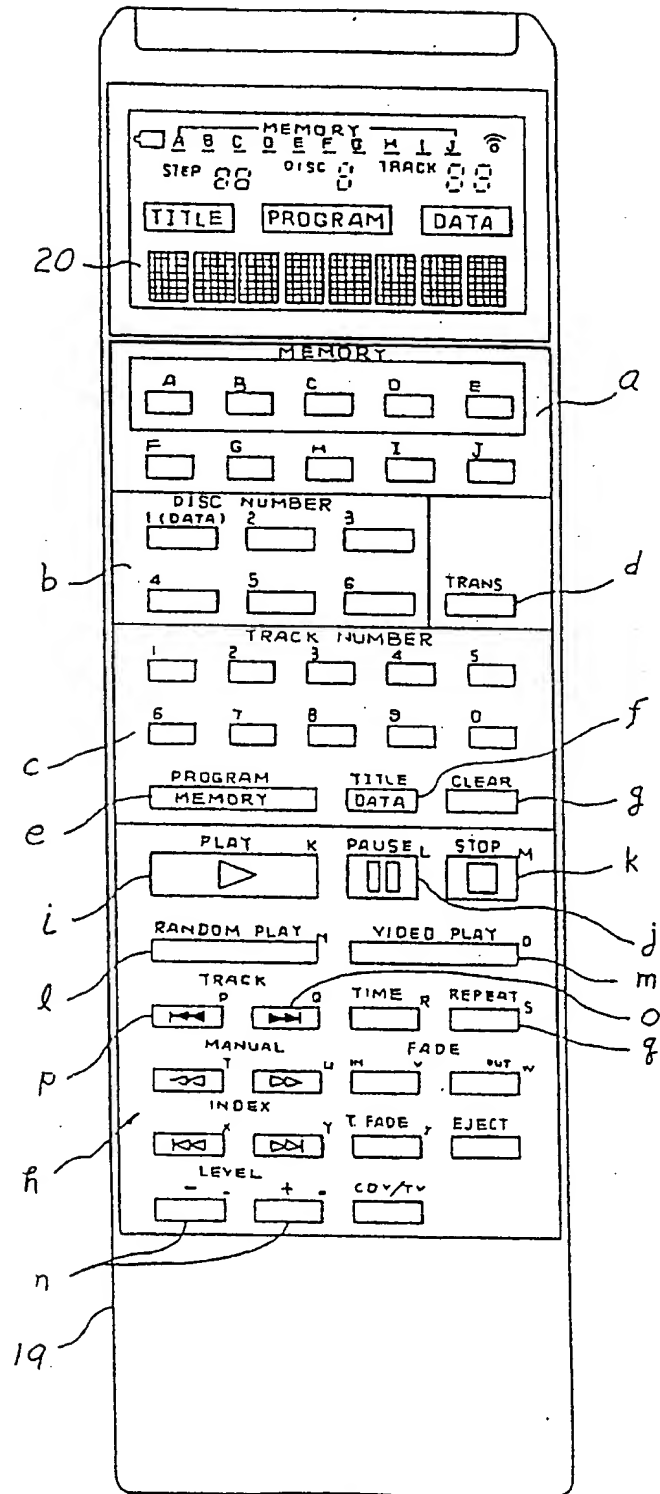 MEMORY
A B C D E F G H I J
STEP 88 DISC 8 TRACK 88
TITLE PROGRAM DATA
20
MEMORY
A B C D E
a
F G H I J
DISC NUMBER
1 (DATA) 2 3
b
d
4 5 6 TRANS
TRACK NUMBER
1 2 3 4 5
6 7 8 9 0
f
c
PROGRAM TITLE CLEAR
MEMORY DATA
e
g
PLAY K PAUSE L STOP M
k
i
j
RANDOM PLAY N VIDEO PLAY O
l
m
TRACK
P Q TIME R REPEAT S
o
q
p
MANUAL FADE
T U IN V OUT W
INDEX
X Y T. FADE EJECT
h
LEVEL
- - + CDV/TV
n
19